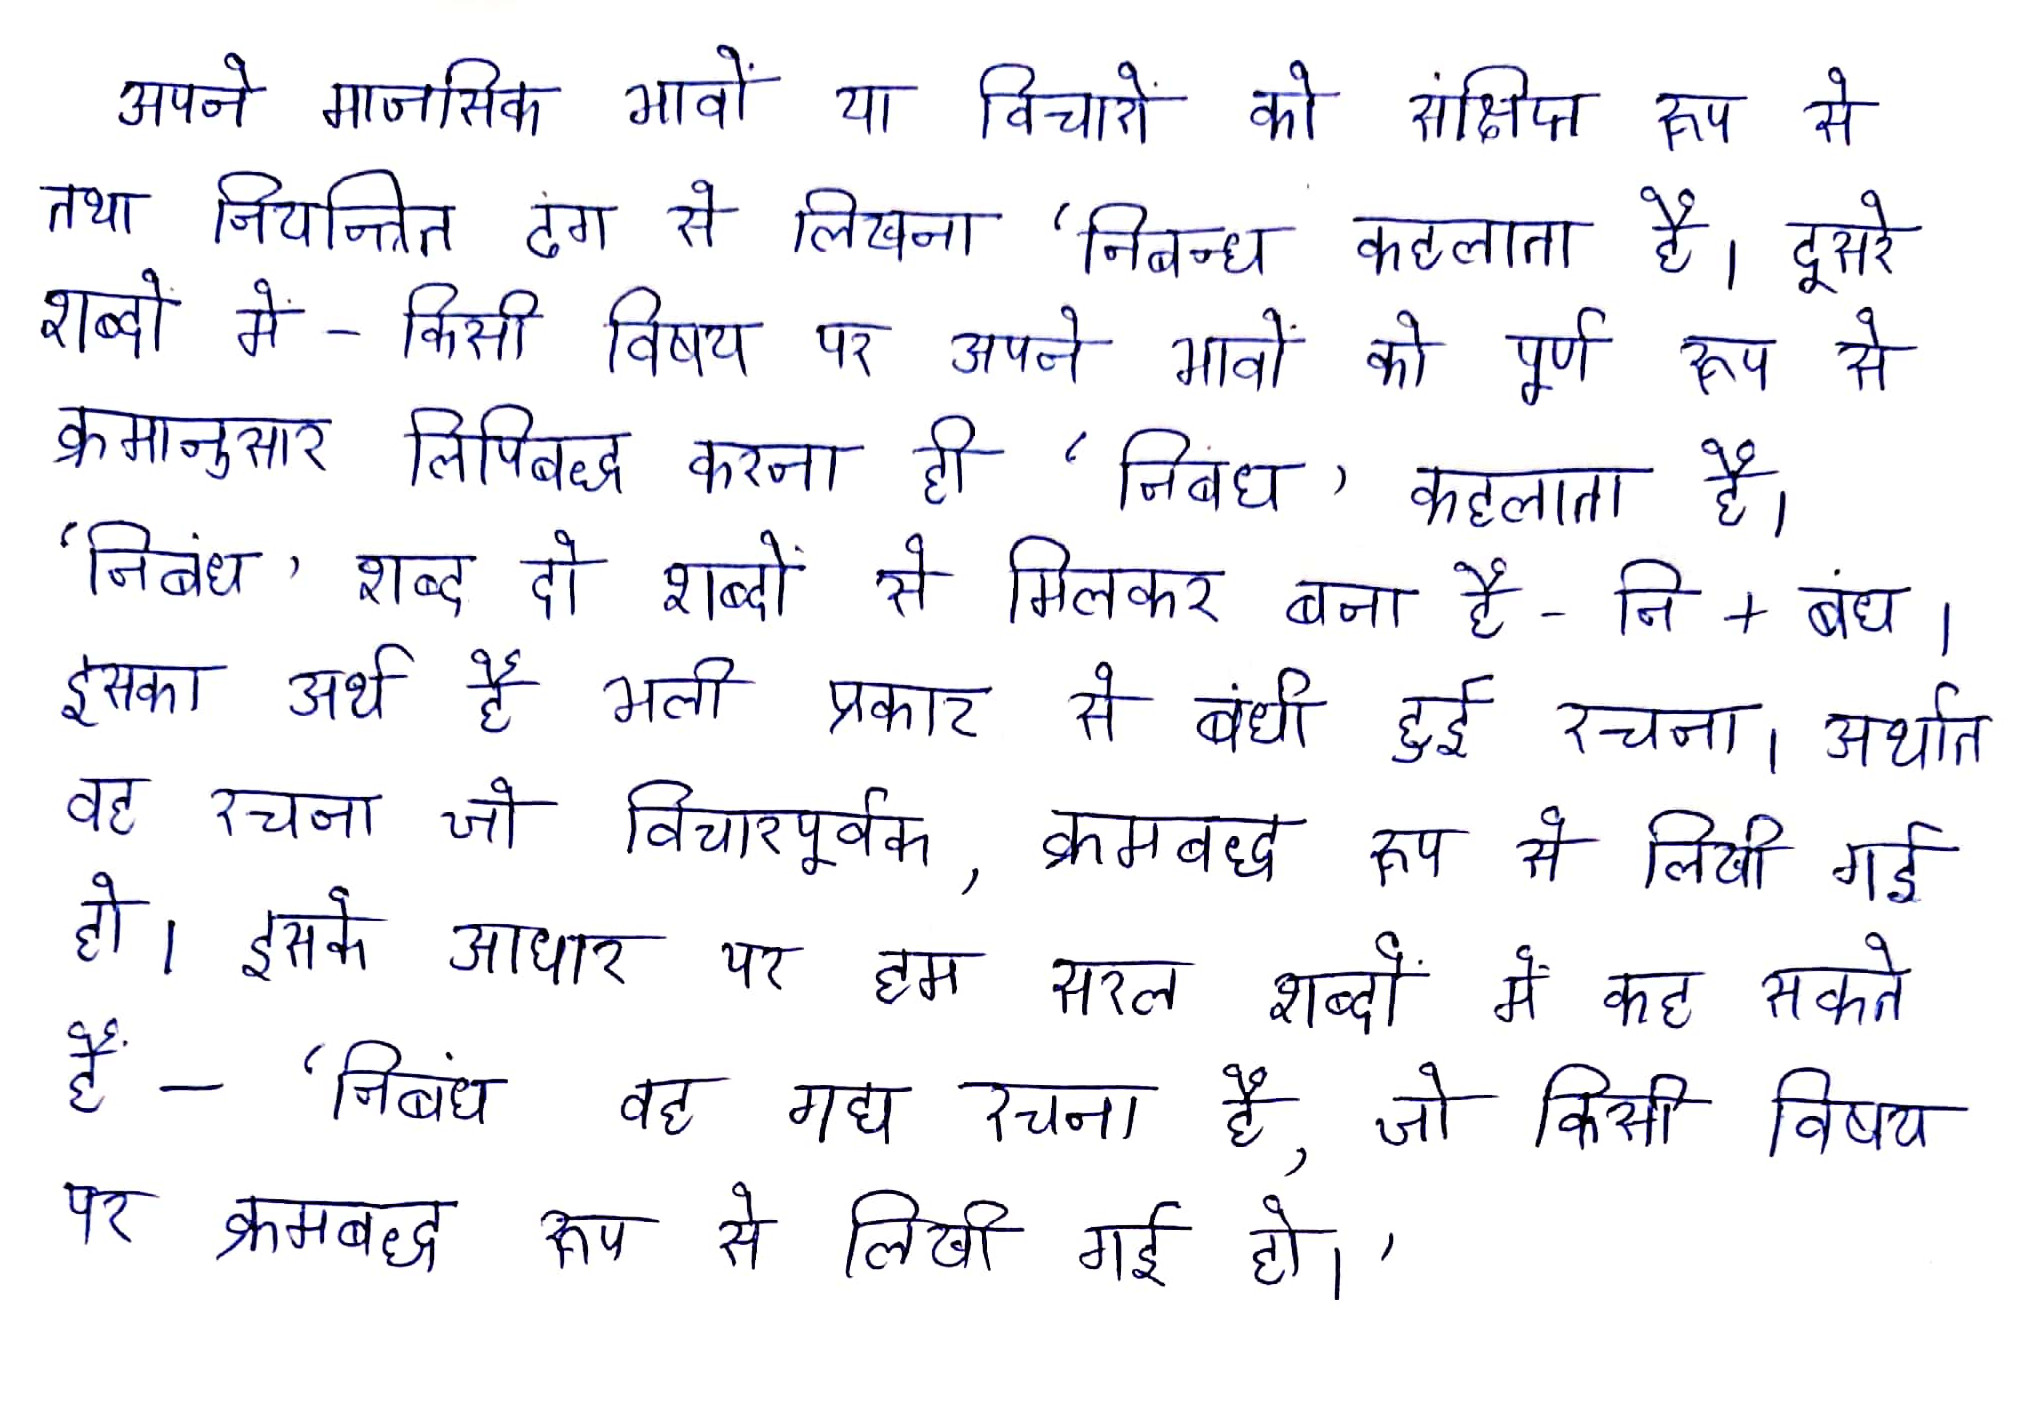 अपने मानसिक भावों या विचारों को संक्षिप्त रूप से
तथा नियन्त्रित ढंग से लिखना ‘निबन्ध कहलाता है। दूसरे
शब्दों में - किसी विषय पर अपने भावों को पूर्ण रूप से
क्रमानुसार लिपिबद्ध करना ही ‘निबंध’ कहलाता है।
‘निबंध’ शब्द दो शब्दों से मिलकर बना है - नि + बंध।
इसका अर्थ है भली प्रकार से बंधी हुई रचना। अर्थात
वह रचना जो विचारपूर्वक, क्रमबद्ध रूप से लिखी गई
हो। इसके आधार पर हम सरल शब्दों में कह सकते
हैं – ‘निबंध वह गद्य रचना है, जो किसी विषय
पर क्रमबद्ध रूप से लिखी गई हो।’